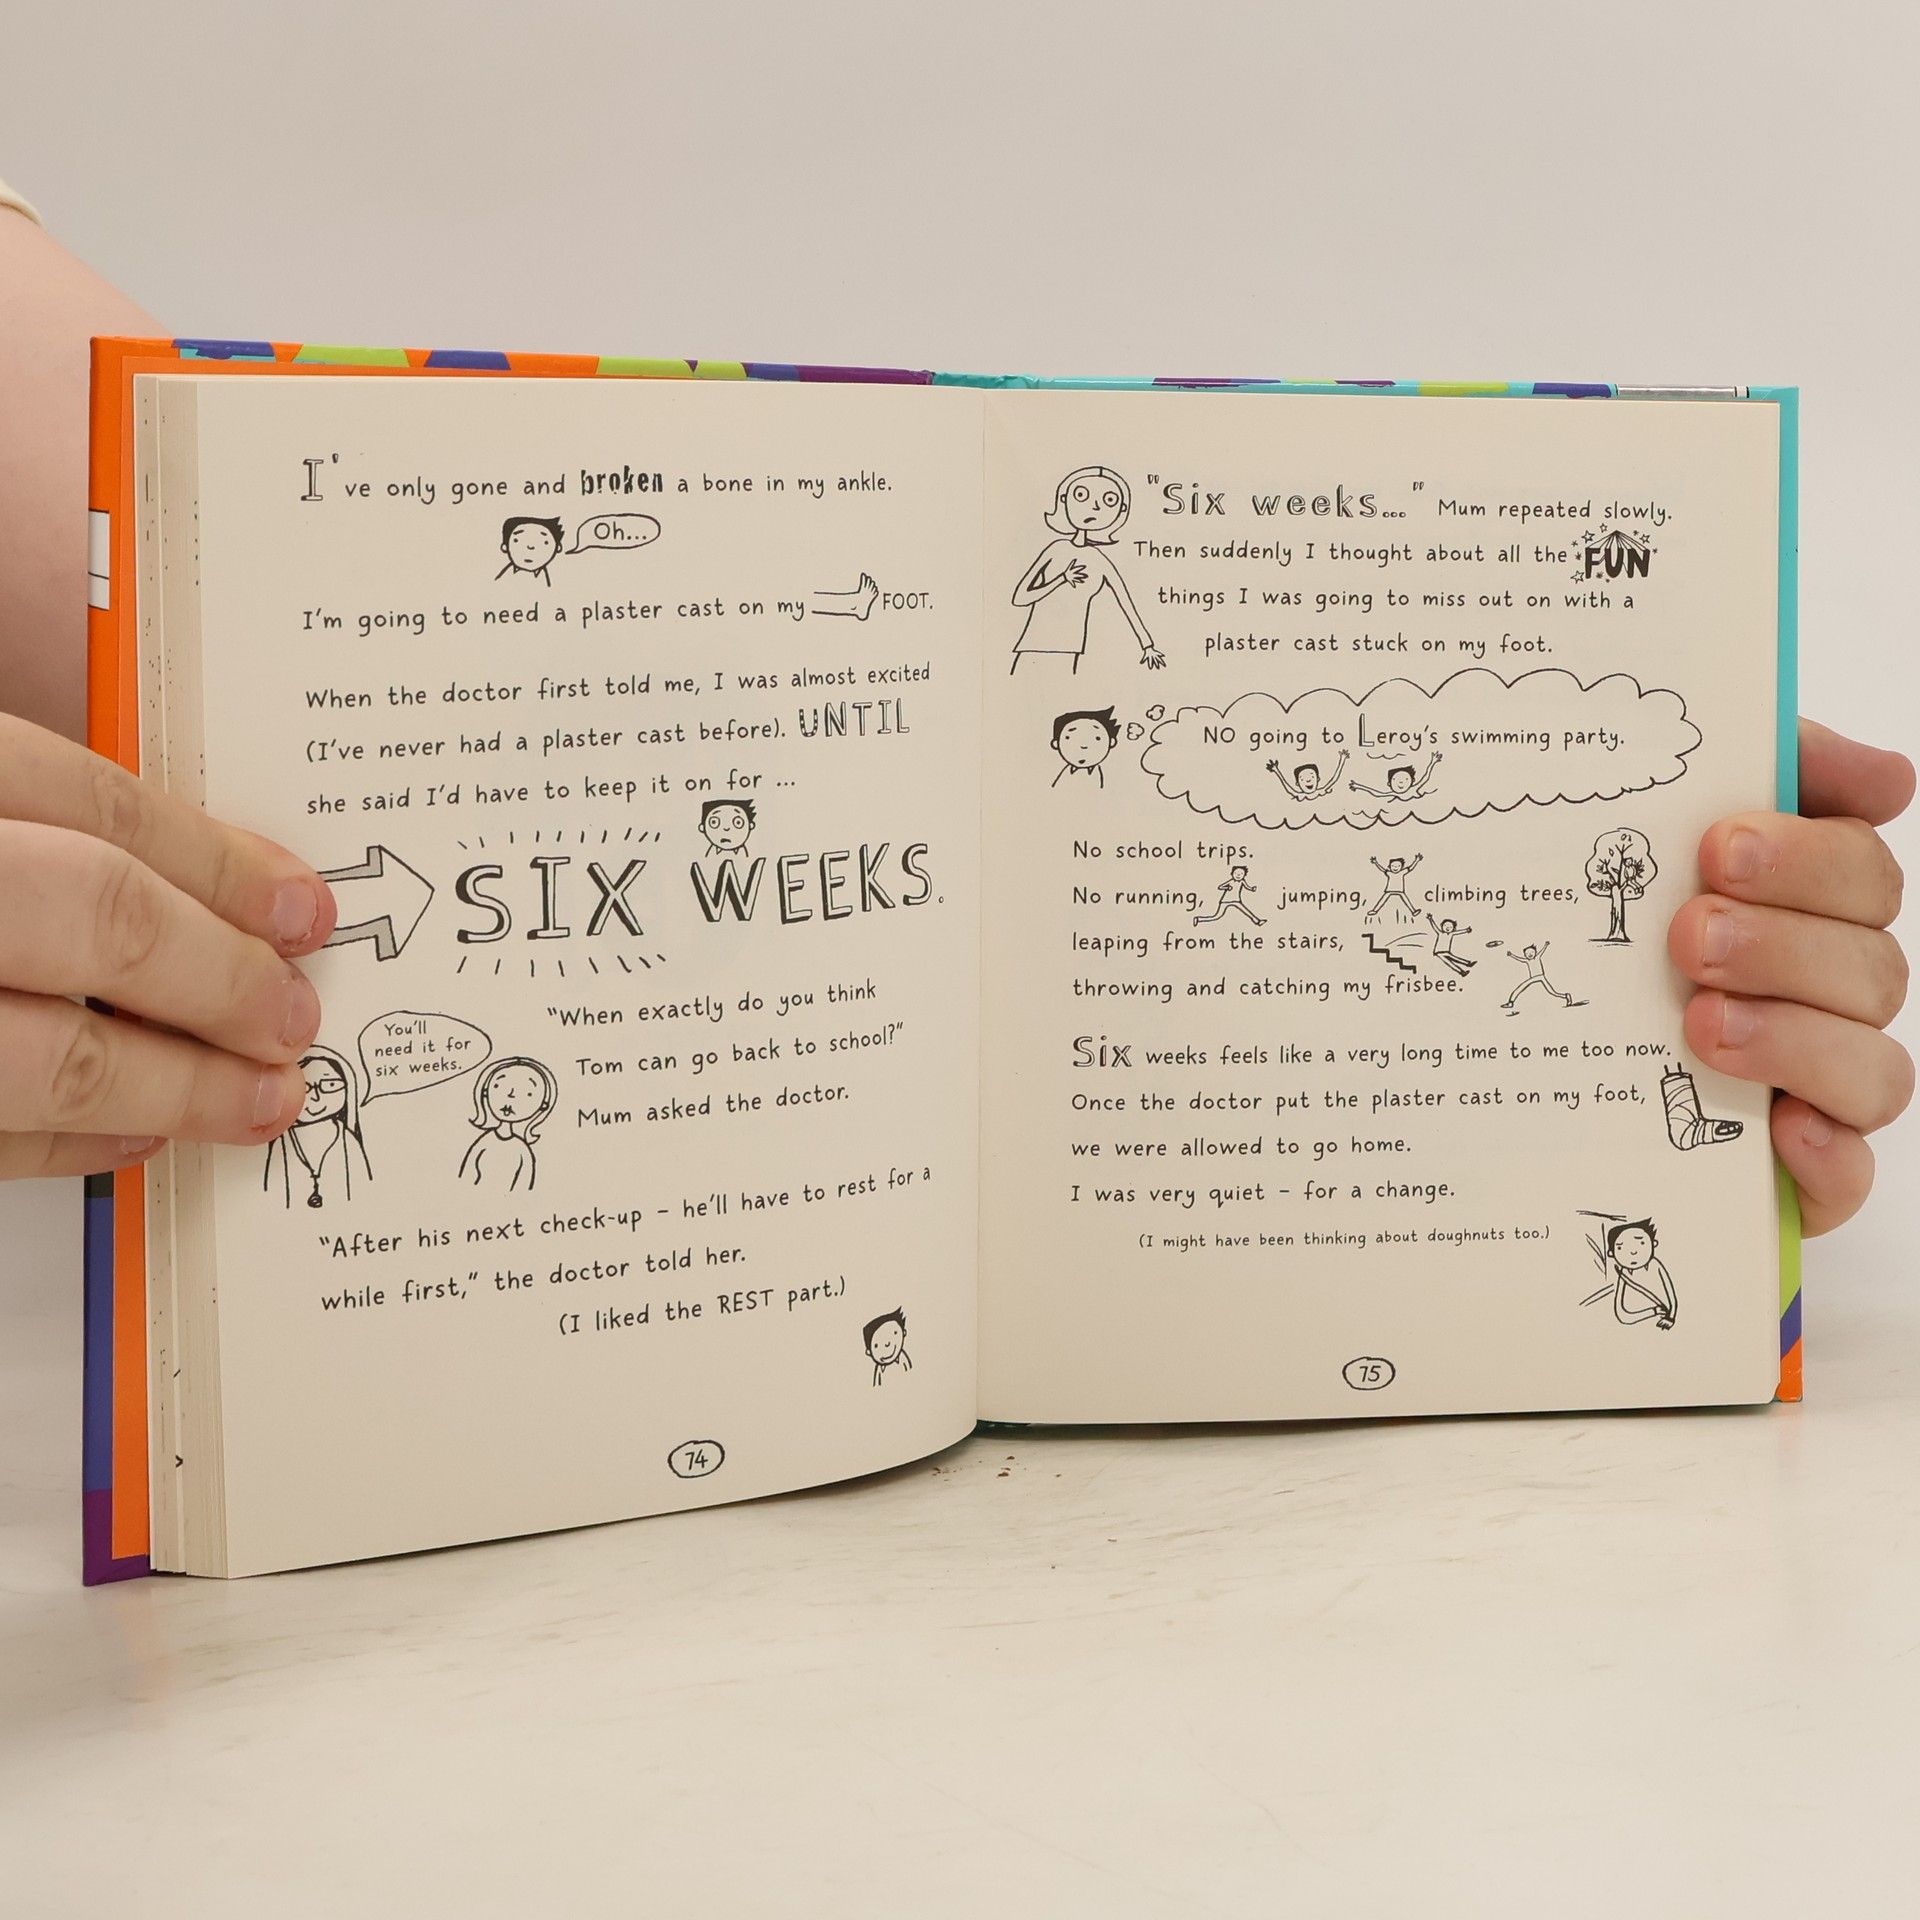 I've only gone and broken a bone in my ankle.
Oh...
I'm going to need a plaster cast on my FOOT.
When the doctor first told me, I was almost excited
(I've never had a plaster cast before). UNTIL
she said I'd have to keep it on for ...
SIX WEEKS.
You'll
need it for
six weeks.
"When exactly do you think
Tom can go back to school?"
Mum asked the doctor.
"After his next check-up – he'll have to rest for a
while first," the doctor told her.
(I liked the REST part.)
74
"Six weeks..." Mum repeated slowly.
Then suddenly I thought about all the FUN
things I was going to miss out on with a
plaster cast stuck on my foot.
NO going to Leroy's swimming party.
No school trips.
No running, jumping, climbing trees,
leaping from the stairs,
throwing and catching my frisbee.
Six weeks feels like a very long time to me too now.
Once the doctor put the plaster cast on my foot,
we were allowed to go home.
I was very quiet – for a change.
(I might have been thinking about doughnuts too.)
75